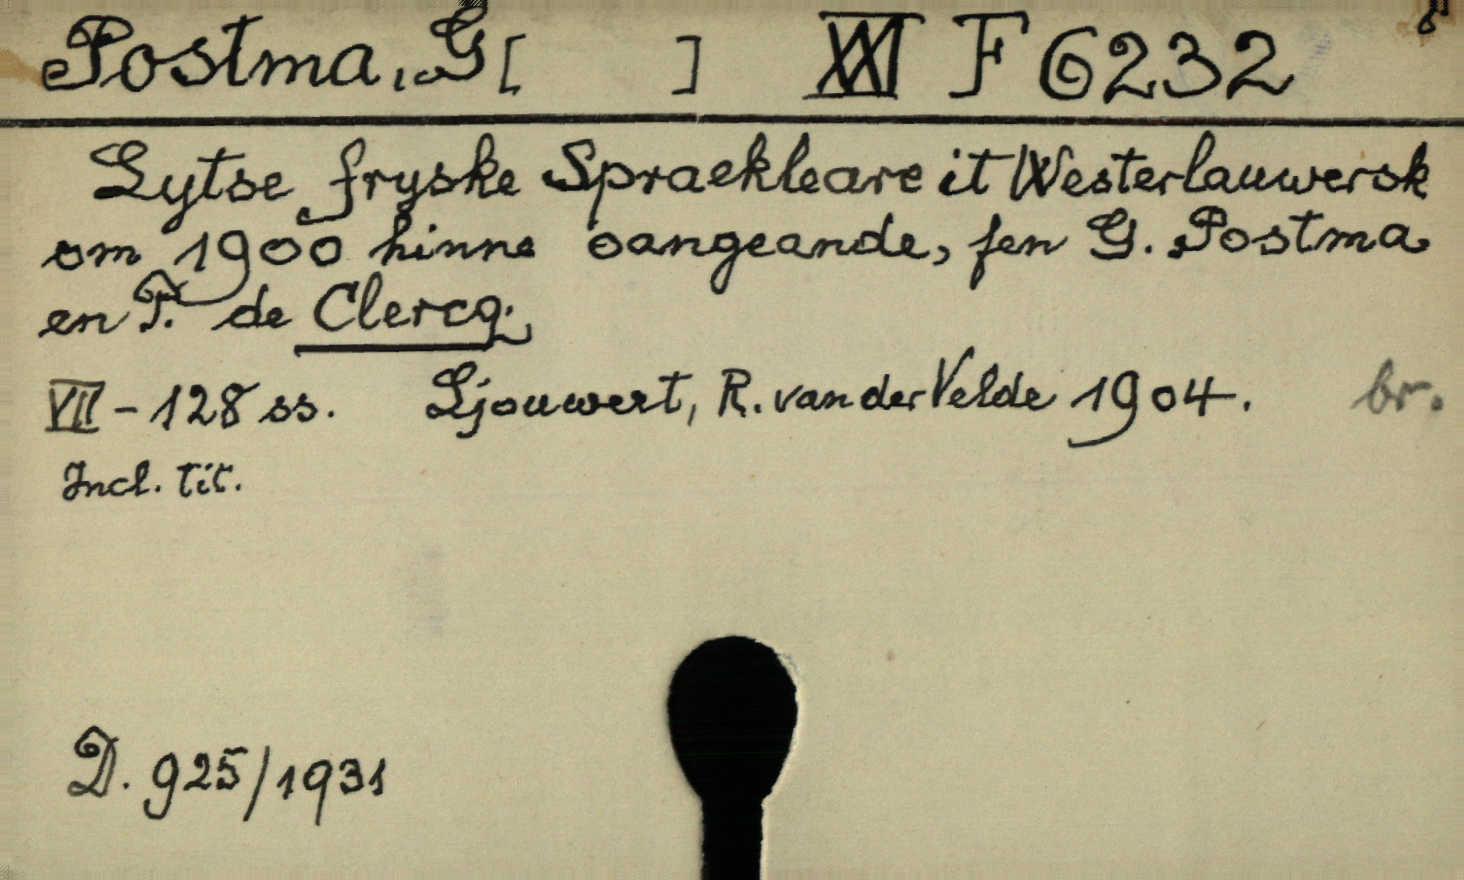 Postma, G[ ] XXI F 6232
Lytse fryske Spraekleare it Westerlauwersk
om 1900 hinne oangeande, fen G. Postma
en P. de Clercq.
VII - 128 ss. Ljouwert, R. van der Velde 1904. br.
Incl. tit.
D. 925/1931